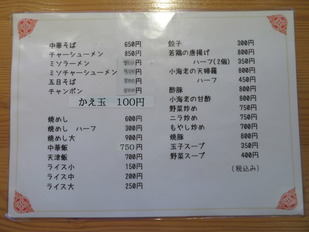 中華そば 650円
チャーシューメン 850円
ミソラーメン
ミソチャーシューメン
五目そば
チャンポン
かえ玉 100円
焼めし 600円
焼めし ハーフ 300円
焼めし大 900円
中華飯 750円
天津飯 700円
ライス小 150円
ライス中 200円
ライス大 250円
餃子 300円
若鶏の唐揚げ 800円
ハーフ(2個) 350円
小海老の天婦羅 800円
ハーフ 450円
酢豚 800円
小海老の甘酢 800円
野菜炒め 750円
ニラ炒め 750円
もやし炒め 700円
焼豚 500円
玉子スープ 350円
野菜スープ 400円
(税込み)